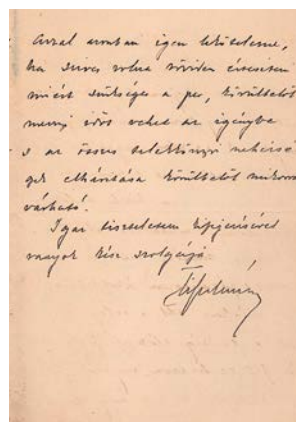 Azzal azonban igen lekötelezne,
ha szives volna röviden értesíteni
miért szükséges a per, körülbelől
mennyi időt vehet az igénybe
s az összes telekkönyvi nehézsé
gek elhárítása körülbelől mikorra
várható.
Igaz tiszteletem kifejezésével
vagyok kész szolgája